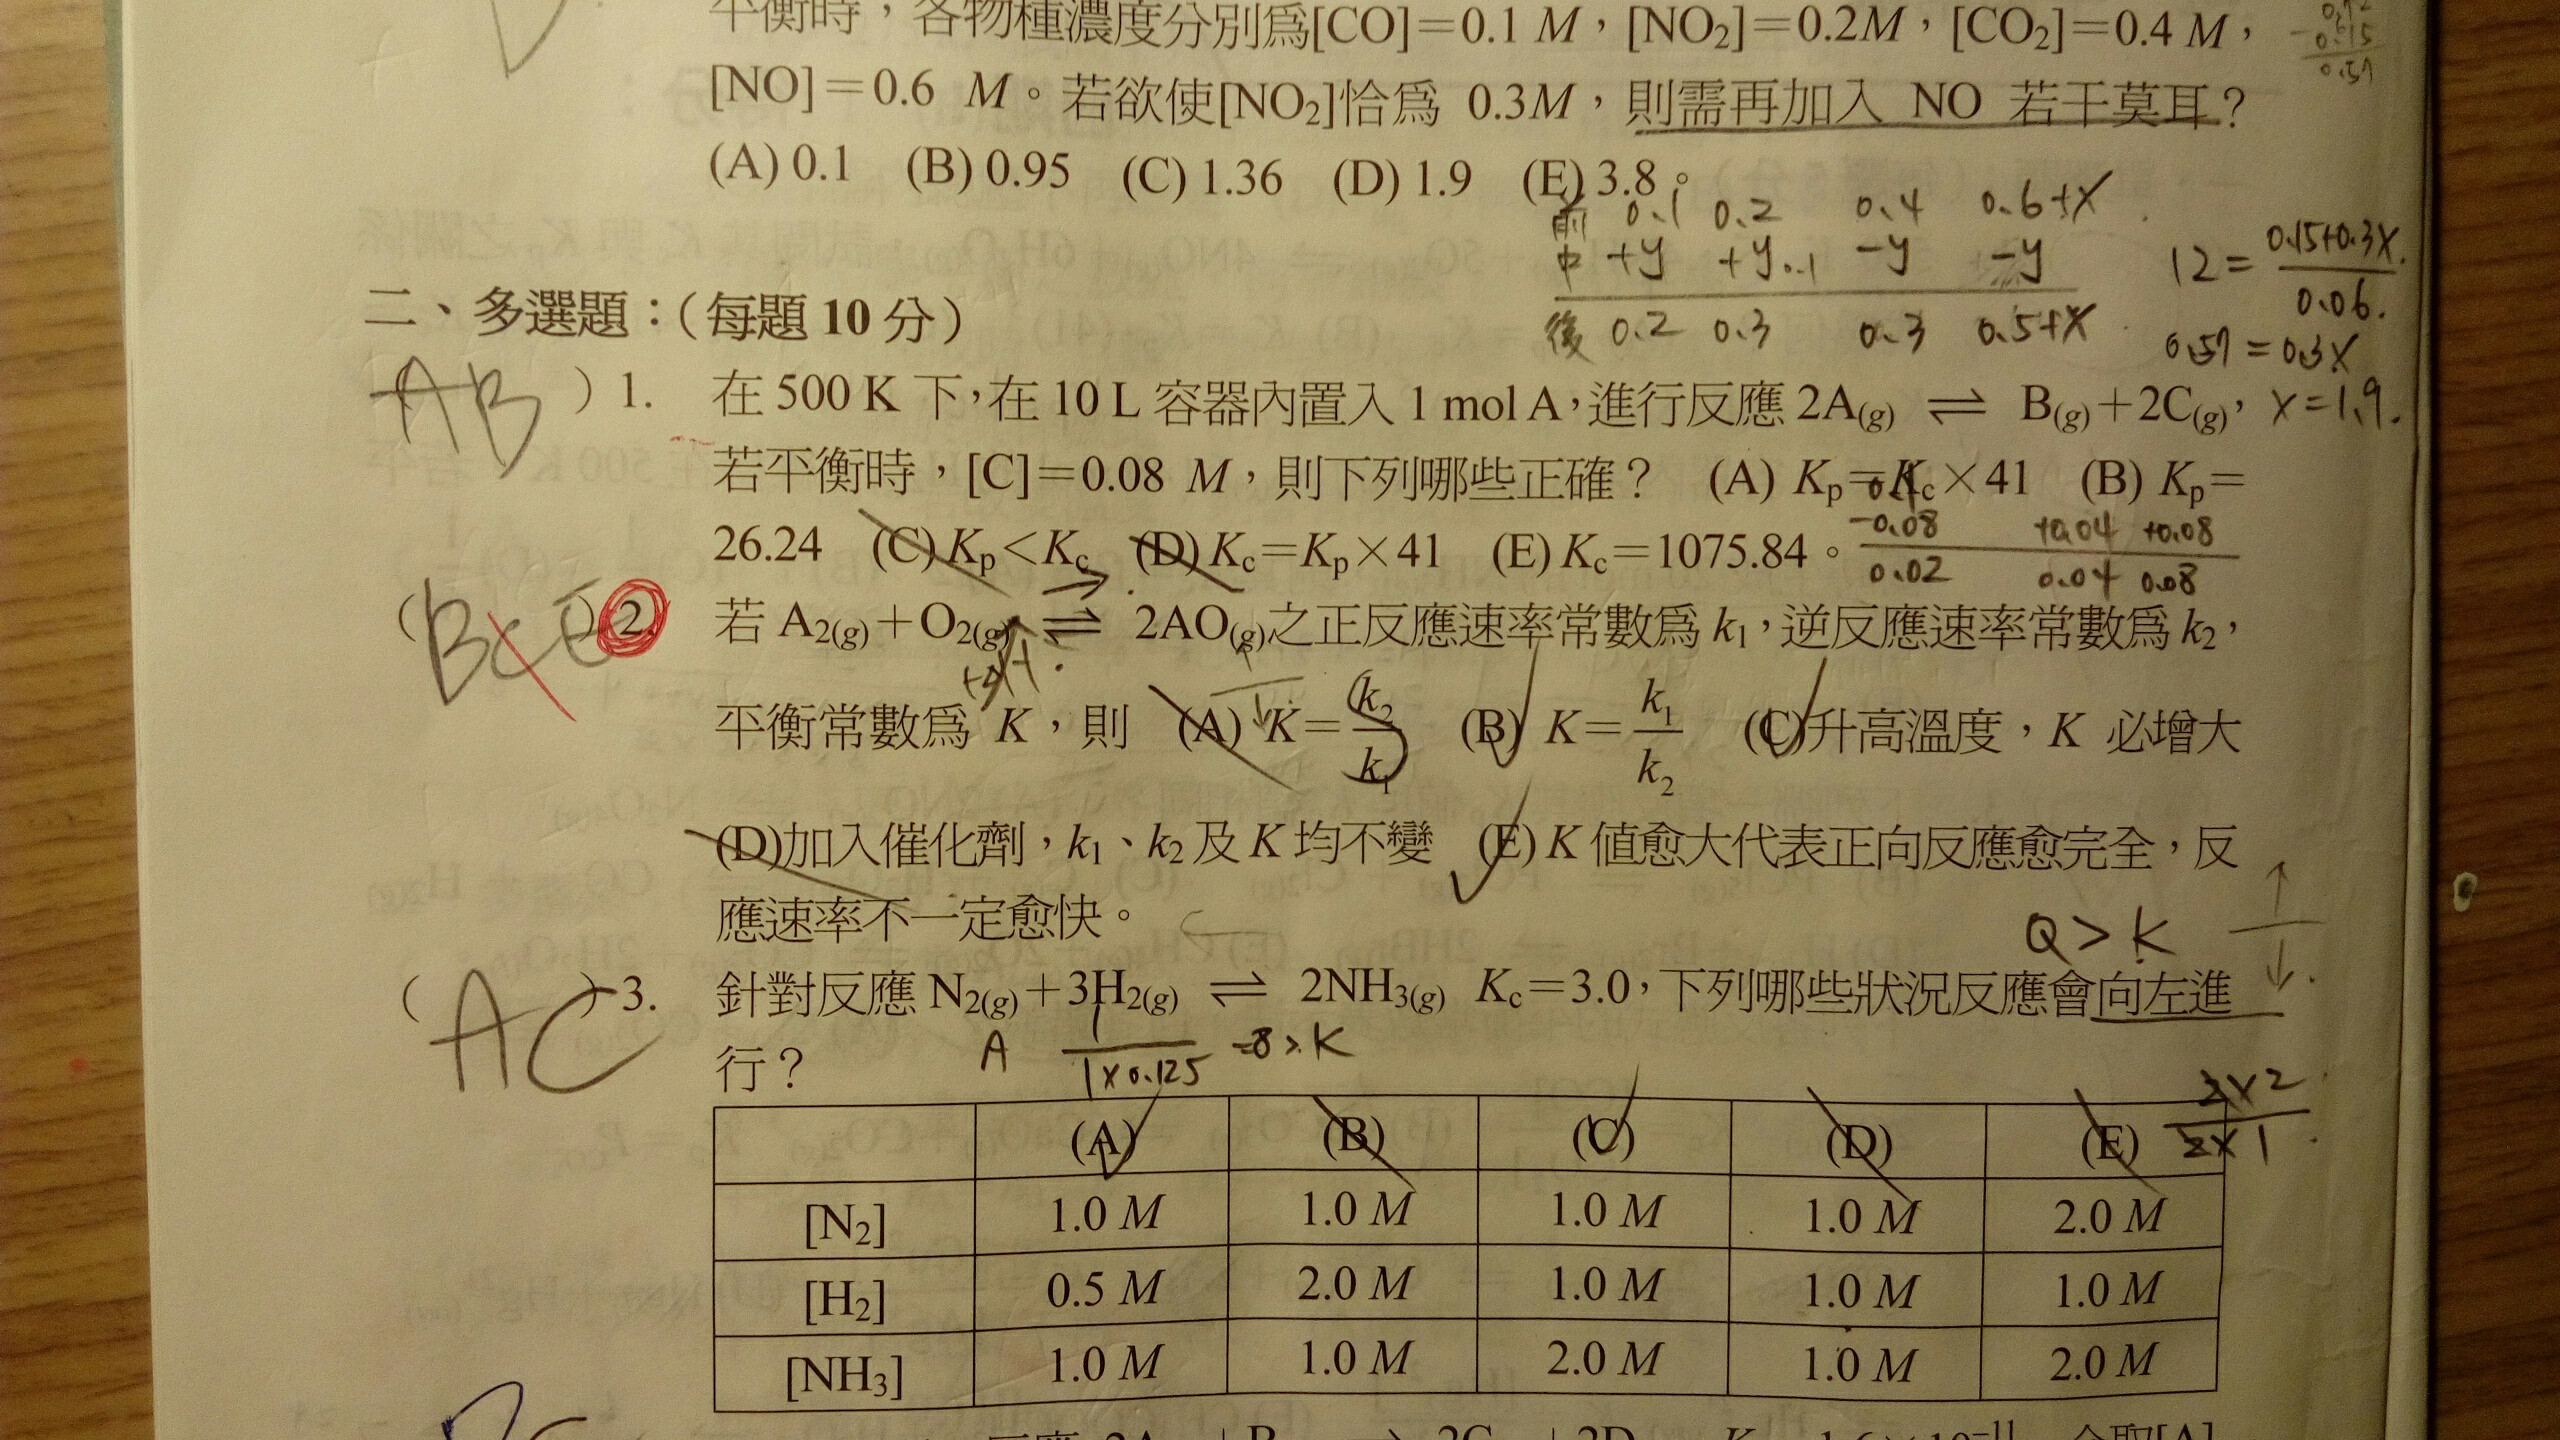 平衡時，各物種濃度分別爲[CO]＝0.1 M，[NO2]＝0.2M，[CO2]＝0.4 M，
[NO]＝0.6 M。若欲使[NO2]恰爲 0.3M，則需再加入 NO 若干莫耳？
(A) 0.1 (B) 0.95 (C) 1.36 (D) 1.9 (E) 3.8。
前 0.1 0.2 0.4 0.6+x
中 +y +y 0.1 -y -y
後 0.2 0.3 0.3 0.5+x
12 = 0.15+0.3x / 0.06
0.57 = 0.3x
x = 1.9.
二、多選題：（每題 10 分）
AB ) 1. 在 500 K 下，在 10 L 容器內置入 1 mol A，進行反應 2A(g) ⇌ B(g)＋2C(g)，
若平衡時，[C]＝0.08 M，則下列哪些正確？ (A) Kp＝Kc×41 (B) Kp＝
26.24 (C) Kp＜Kc (D) Kc＝Kp×41 (E) Kc＝1075.84。
0.1
-0.08 +0.04 +0.08
0.02 0.04 0.08
( BCE ) 2. 若 A2(g)＋O2(g) ⇌ 2AO(g)之正反應速率常數爲 k1，逆反應速率常數爲 k2，
+ΔH
平衡常數爲 K，則 (A) K＝k2/k1 (B) K＝k1/k2 (C)升高溫度，K 必增大
(D)加入催化劑，k1、k2 及 K 均不變 (E) K 值愈大代表正向反應愈完全，反
應速率不一定愈快。
Q > K
( AC ) 3. 針對反應 N2(g)＋3H2(g) ⇌ 2NH3(g) Kc＝3.0，下列哪些狀況反應會向左進
行？
A 1 / 1×0.125 =8 > K
2×2 / 2×1
(A) (B) (C) (D) (E)
[N2] 1.0 M 1.0 M 1.0 M 1.0 M 2.0 M
[H2] 0.5 M 2.0 M 1.0 M 1.0 M 1.0 M
[NH3] 1.0 M 1.0 M 2.0 M 1.0 M 2.0 M